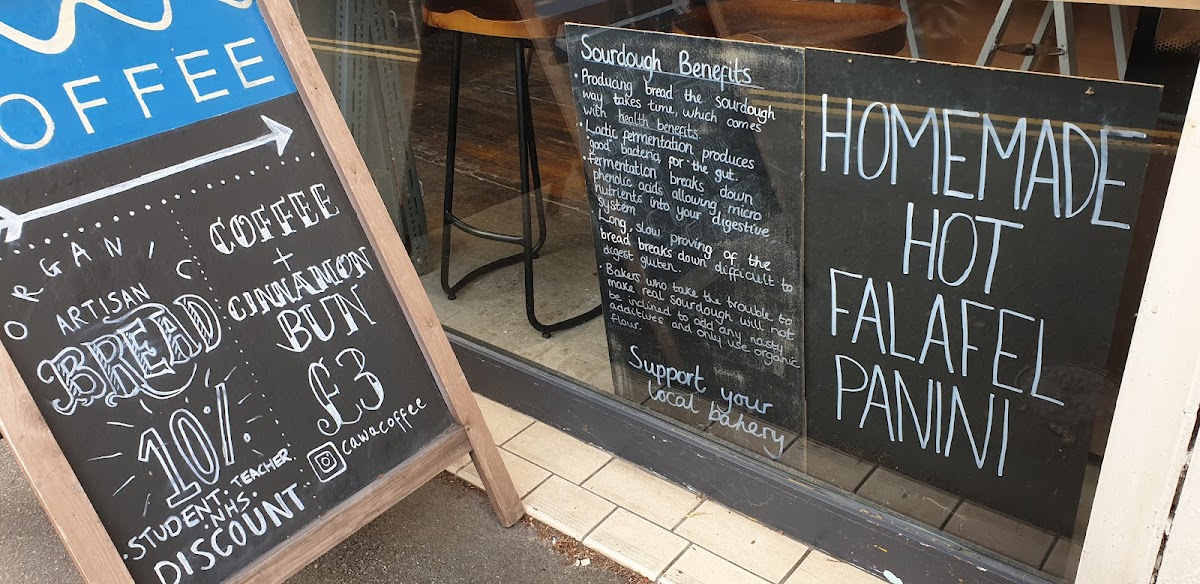 COFFEE
ORGANIC
ARTISAN
BREAD
10%
• STUDENT • TEACHER
• NHS •
DISCOUNT
COFFEE
+
CINNAMON
BUN
£3
cawacoffee
Sourdough Benefits
• Producing bread the sourdough
way takes time, which comes
with health benefits
• Lactic fermentation produces
"good" bacteria for the gut.
• Fermentation breaks down
phenolic acids allowing micro
nutrients into your digestive
system
• Long, slow proving of the
bread breaks down difficult to
digest gluten.
• Bakers who take the trouble to
make real sourdough will not
be inclined to add any nasty
additives and only use organic
flour.
Support your
local bakery
HOMEMADE
HOT
FALAFEL
PANINI